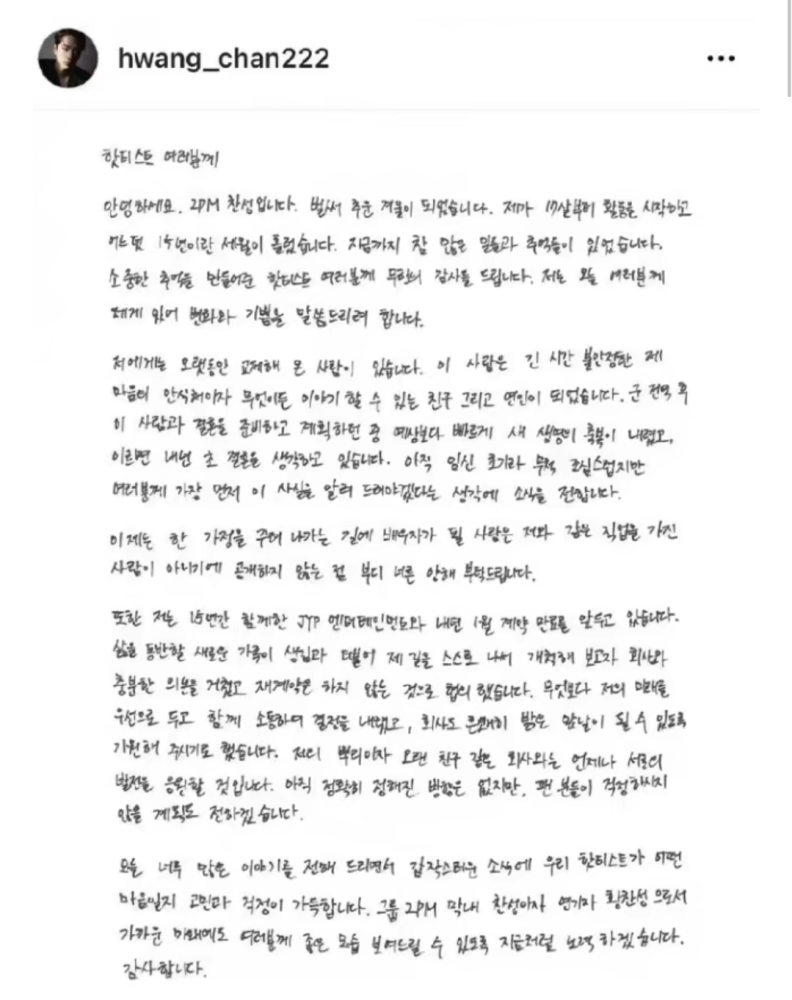 hwang_chan222
핫티스트 여러분께
안녕하세요. 2PM 찬성입니다. 벌써 추운 겨울이 되었습니다. 제가 17살부터 활동을 시작하고
어느덧 15년이란 세월이 흘렀습니다. 지금까지 참 많은 일들과 추억들이 있었습니다.
소중한 추억을 만들어준 핫티스트 여러분께 무한히 감사를 드립니다. 저는 오늘 여러분께
제게 있어 변화와 기쁨을 말씀드리려 합니다.
저에게는 오랫동안 교제해 온 사람이 있습니다. 이 사람은 긴 시간 불안정한 제
마음의 안식처이자 무엇이든 이야기 할 수 있는 친구 그리고 연인이 되었습니다. 군 전역 후
이 사람과 결혼을 준비하고 계획하던 중 예상보다 빠르게 새 생명의 축복이 내렸고,
이르면 내년 초 결혼을 생각하고 있습니다. 아직 임신 초기라 무척 조심스럽지만
여러분께 가장 먼저 이 사실을 알려 드려야겠다는 생각에 소식을 전합니다.
이제는 한 가정을 꾸려 나가는 길에 배우자가 될 사람은 저와 같은 직업을 가진
사람이 아니기에 공개하지 않는 점 부디 너른 양해 부탁드립니다.
또한 저는 15년간 함께한 JYP 엔터테인먼트와 내년 1월 계약 만료를 앞두고 있습니다.
삶을 동반할 새로운 가족이 생김과 더불어 제 길을 스스로 나서 개척해 보고자 회사와
충분한 의논을 거쳤고 재계약은 하지 않는 것으로 협의 했습니다. 무엇보다 저의 미래를
우선으로 두고 함께 소통하여 결정을 내렸고, 회사도 온전히 밝은 앞날이 될 수 있도록
기원해 주시기도 했습니다. 저의 뿌리이자 오랜 친구 같은 회사와는 언제나 서로의
발전을 응원할 것입니다. 아직 정확히 정해진 방향은 없지만, 팬 분들이 걱정하시지
않을 계획도 전하겠습니다.
오늘 너무 많은 이야기를 전해 드리면서 갑작스러운 소식에 우리 핫티스트가 어떤
마음일지 고민과 걱정이 가득합니다. 그룹 2PM 막내 찬성이자 연기자 황찬성으로서
가까운 미래에도 여러분께 좋은 모습 보여드릴 수 있도록 지금처럼 노력하겠습니다.
감사합니다.